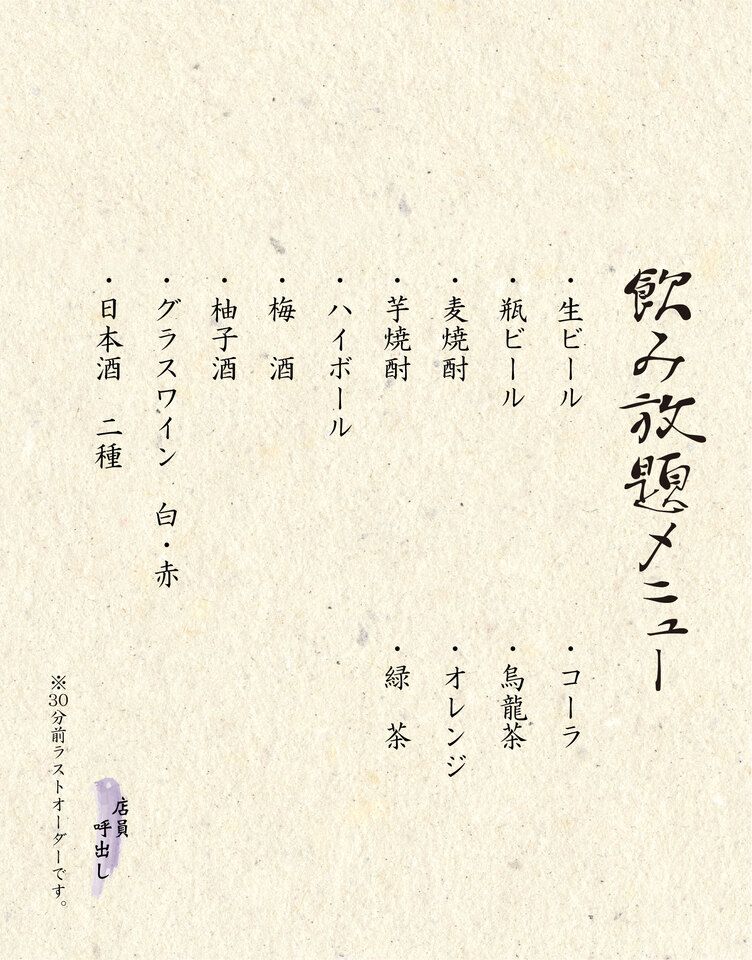 飲み放題メニュー
・生ビール
・瓶ビール
・麦焼酎
・芋焼酎
・ハイボール
・梅　酒
・柚子酒
・グラスワイン　白・赤
・日本酒　二種
・コーラ
・烏龍茶
・オレンジ
・緑　茶
店員
呼出し
※30分前ラストオーダーです。